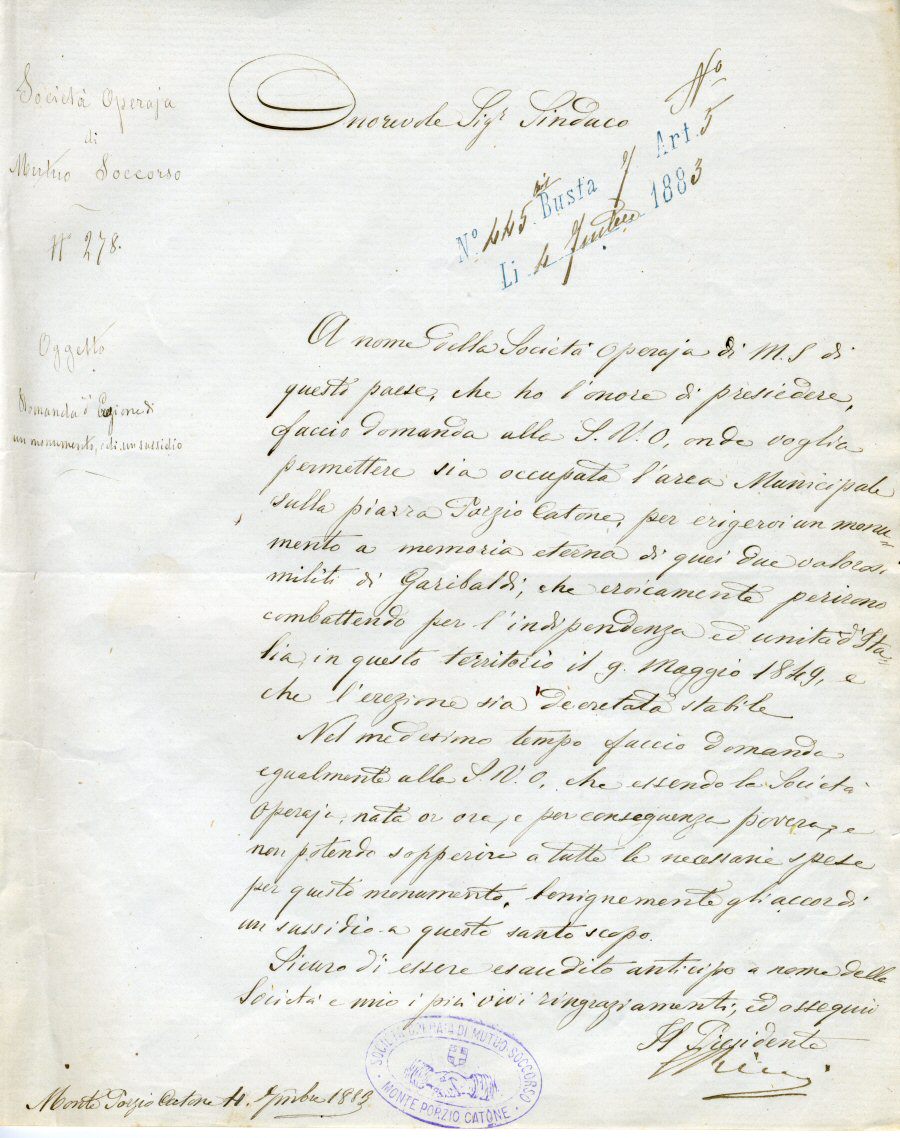 Società Operaja
di
Mutuo Soccorso
N° 278.
Oggetto
Domanda d'Erezione di
un monumento, e di un sussidio
Onorevole Sigr Sindaco
No
N.o 445 bis Busta 7 Art. 5
Li 4 9mbre 1883
A nome della Società Operaja di M. S di
questo paese, che ho l'onore di presiedere,
faccio domanda alla S. V. O, onde voglia
permettere sia occupata l'area Municipale
sulla piazza Porzio Catone, per erigervi un monu-
mento a memoria eterna di quei due valorosi
militi di Garibaldi, che eroicamente perirono
combattendo per l'indipendenza ed unità d'Ita-
lia, in questo territorio il 9. Maggio 1849, e
che l'erezione sia decretata stabile
Nel medesimo tempo faccio domanda
egualmente alla S. V. O. che essendo la Società
Operaja, nata or ora, e per conseguenza povera, e
non potendo sopperire a tutte le necessarie spese
per questo monumento, benignemente gli accordi
un sussidio a questo santo scopo.
Sicuro di essere esaudito anticipo a nome della
Società e mio i più vivi ringraziamenti, ed ossequii
Il Presidente
SOCIETÀ OPERAIA DI MUTUO SOCCORSO
MONTE PORZIO CATONE
Monte Porzio Catone 4. 9mbre 1883